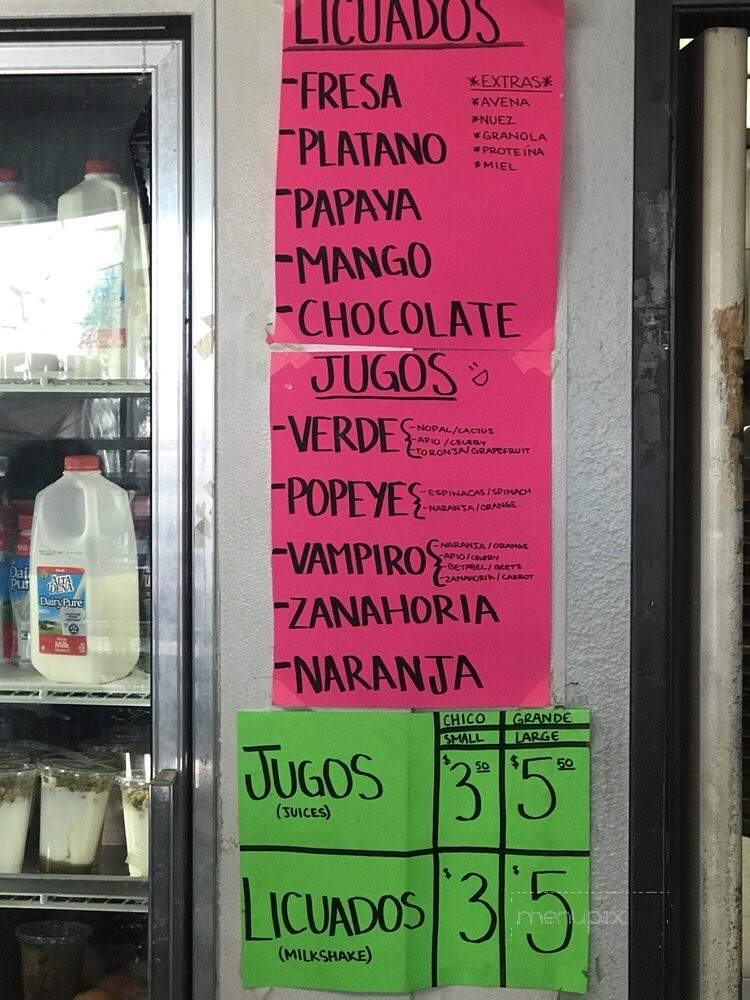 LICUADOS
-FRESA
-PLATANO
-PAPAYA
-MANGO
-CHOCOLATE
*EXTRAS*
*AVENA
*NUEZ
*GRANOLA
*PROTEÍNA
*MIEL
JUGOS
-VERDE
-NOPAL/CACTUS
-APIO/CELERY
-TORONJA/GRAPEFRUIT
-POPEYE
-ESPINACAS/SPINACH
-NARANJA/ORANGE
-VAMPIRO
-NARANJA/ORANGE
-APIO/CELERY
-BETABEL/BEETS
-ZANAHORIA/CARROT
-ZANAHORIA
-NARANJA
CHICO GRANDE
SMALL LARGE
JUGOS $3.50 $5.50
(JUICES)
LICUADOS $3 $5
(MILKSHAKE)
ALTA DENA
DairyPure
Milk
menupix